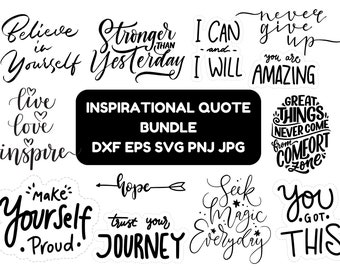 Believe
in
Yourself
Stronger
THAN
Yesterday
I CAN
and
I WILL
never
give
up
you are
AMAZING
live
love
inspire
INSPIRATIONAL QUOTE
BUNDLE
DXF EPS SVG PNJ JPG
GREAT
THINGS
NEVER COME
from
COMFORT
ZONE
make
Yourself
Proud
hope
trust your
JOURNEY
Seek
Magic
Everyday
YOU
GOT
THIS